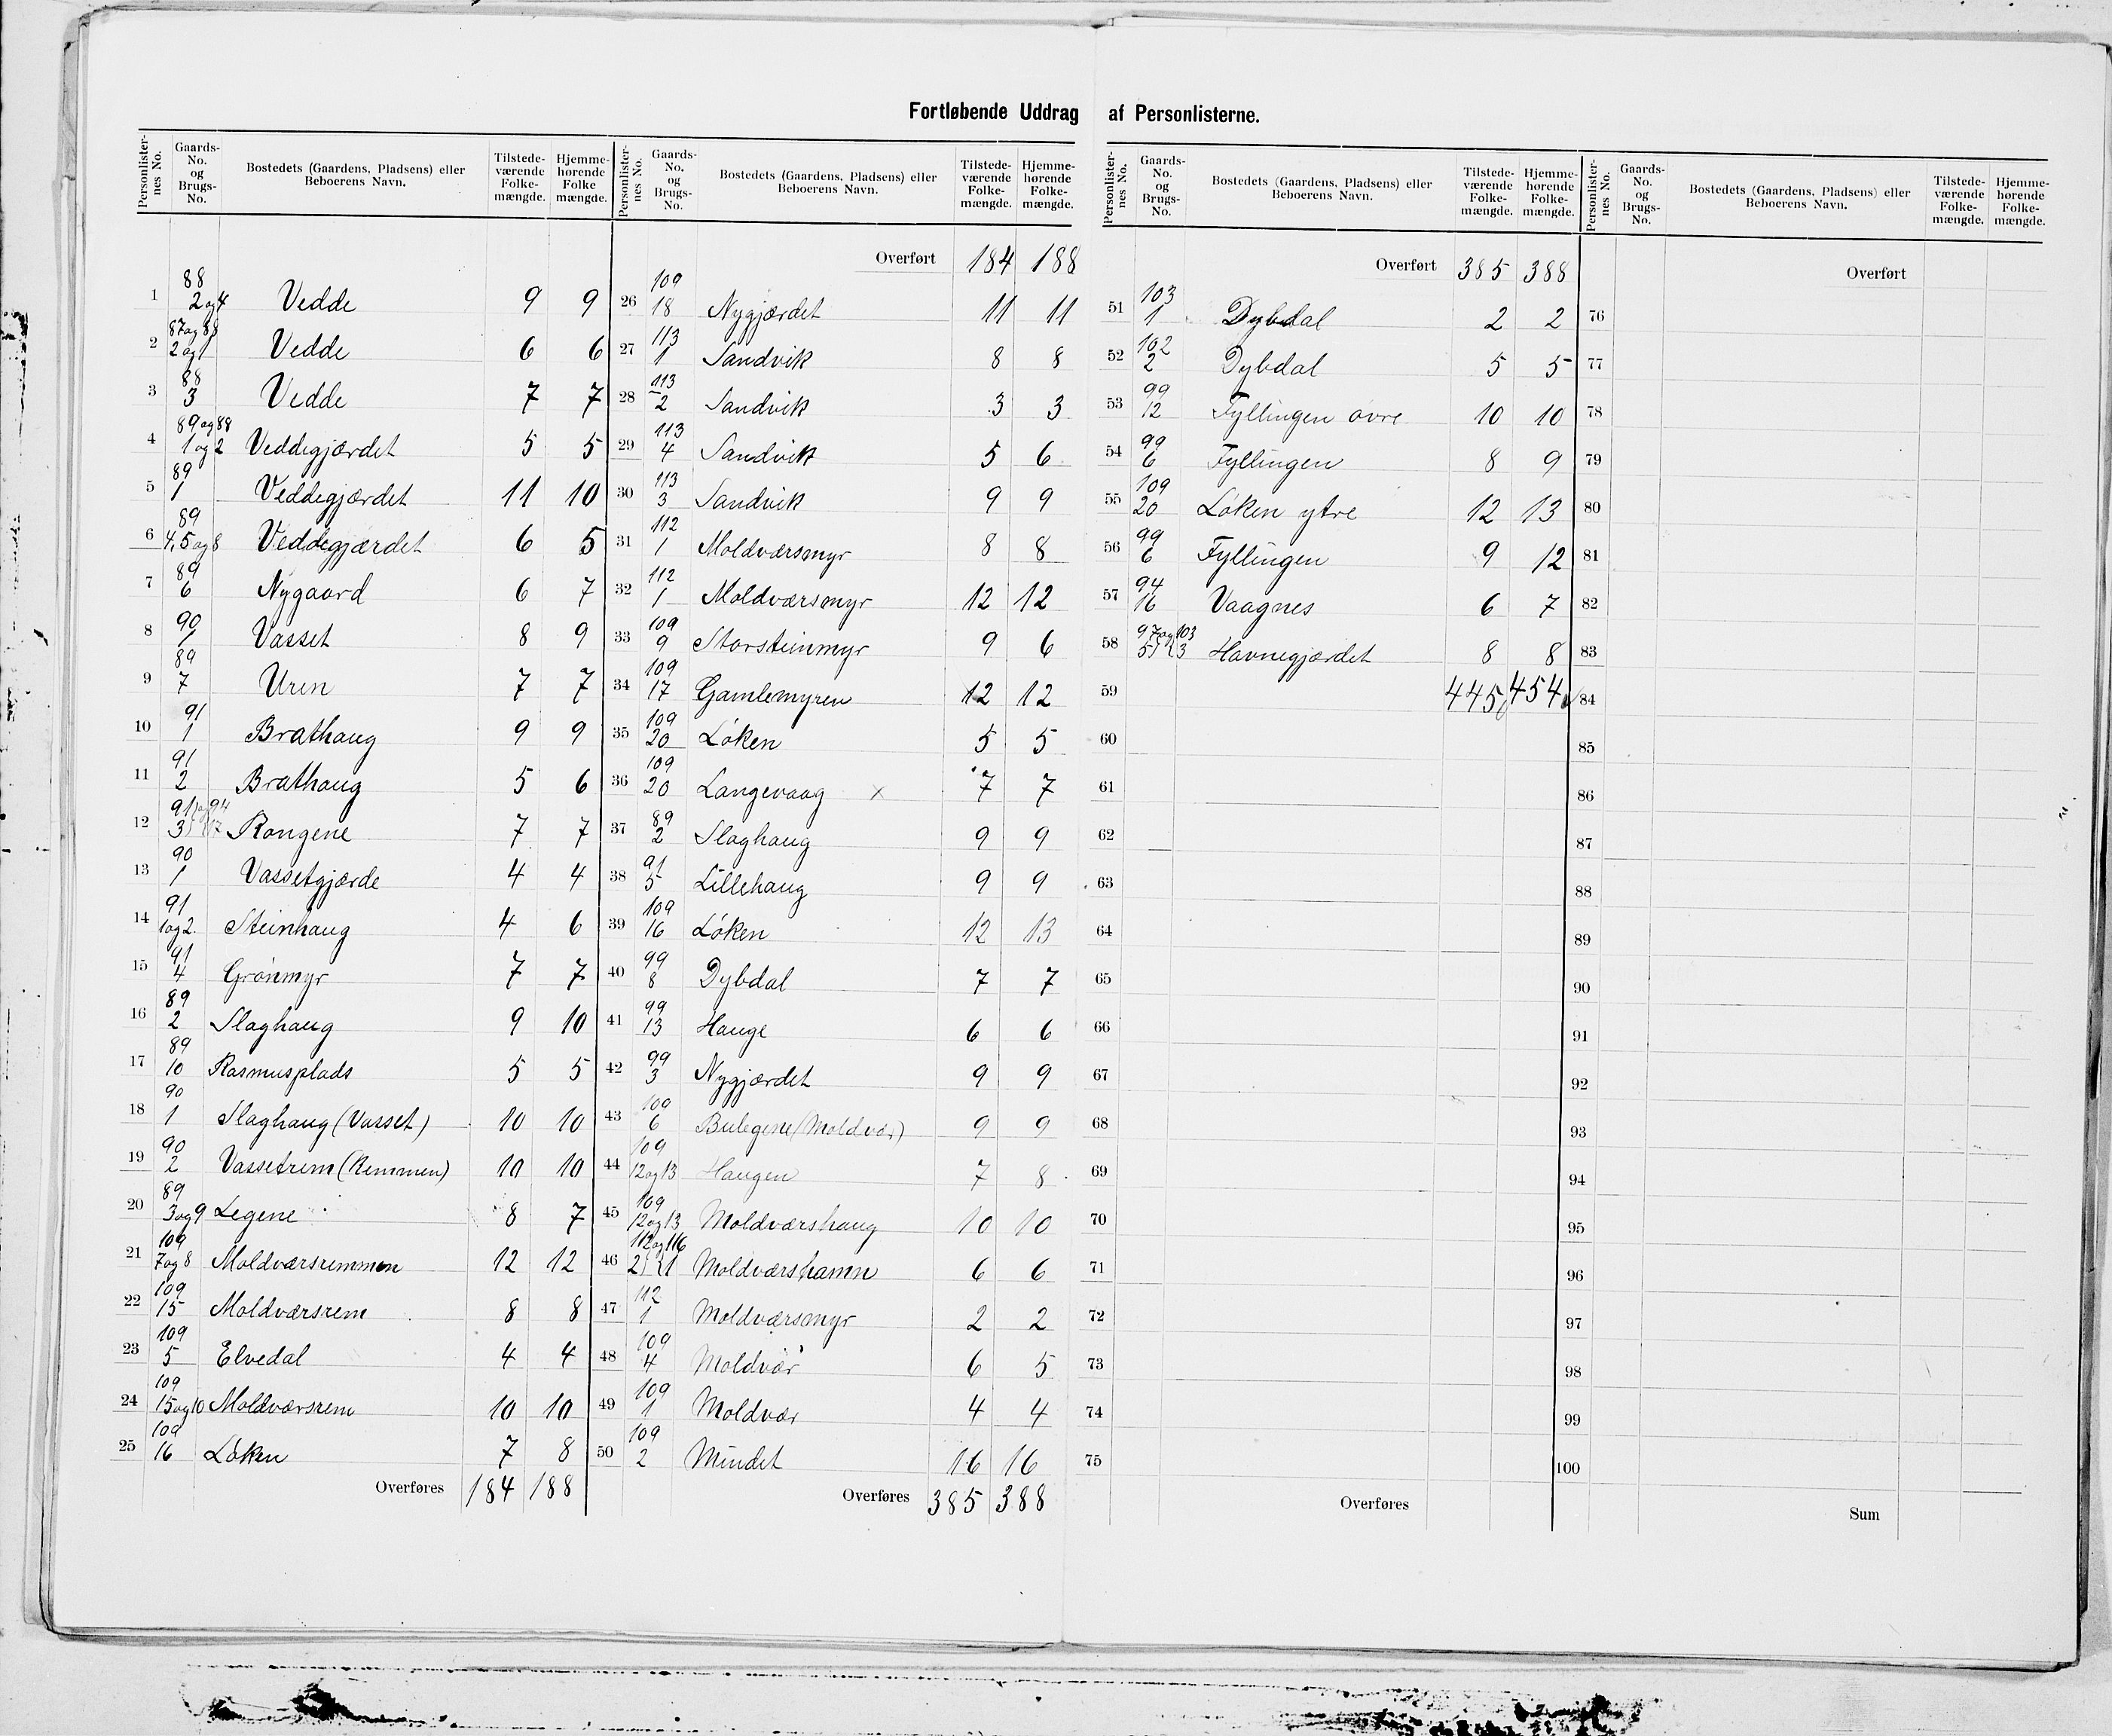 Fortløbende Uddrag af Personlisterne.
Personlister-nes No. Gaards-No. og Brugs-No. Bostedets (Gaardens, Pladsens) eller Beboerens Navn. Tilstede-værende Folke-mængde. Hjemme-hørende Folke mængde.
88
1 2og4 Vedde 9 9
87og88
2 2og1 Vedde 6 6
88
3 3 Vedde 7 7
89og88
4 1og2 Veddegjærdet 5 5
89
5 1 Veddegjærdet 11 10
89
6 4,5og8 Veddegjærdet 6 5
89
7 6 Nygaard 6 7
90
8 1 Vasset 8 9
89
9 7 Uren 7 7
91
10 1 Brathaug 9 9
91
11 2 Brathaug 5 6
91og94
12 3 17 Rongene 7 7
90
13 1 Vassetgjærde 4 4
91
14 1og2 Steinhaug 4 6
91
15 4 Grønmyr 7 7
89
16 2 Slaghaug 9 10
89
17 10 Rasmusplads 5 5
90
18 1 Slaghaug (Vasset) 10 10
90
19 2 Vassetrem (Remmen) 10 10
89
20 3og9 Legene 8 7
109
21 7og8 Moldværsremmen 12 12
109
22 15 Moldværsrem 8 8
109
23 5 Elvedal 4 4
109
24 15og10 Moldværsrem 10 10
109
25 16 Løken 7 8
Overføres 184 188
Personlister-nes No. Gaards-No. og Brugs-No. Bostedets (Gaardens, Pladsens) eller Beboerens Navn. Tilstede-værende Folke-mængde. Hjemme-hørende Folke-mængde.
Overført 184 188
109
26 18 Nygjærdet 11 11
113
27 1 Sandvik 8 8
113
28 2 Sandvik 3 3
113
29 4 Sandvik 5 6
113
30 3 Sandvik 9 9
112
31 1 Moldværsmyr 8 8
112
32 1 Moldværsmyr 12 12
109
33 9 Storsteinmyr 9 6
109
34 17 Gamlemyren 12 12
109
35 20 Løken 5 5
109
36 20 Langevaag x 7 7
89
37 2 Slaghaug 9 9
91
38 5 Lillehaug 9 9
109
39 16 Løken 12 13
99
40 8 Dybdal 7 7
99
41 13 Hauge 6 6
99
42 3 Nygjærdet 9 9
109
43 6 Bulegene (Moldvær) 9 9
109
44 12og13 Haugen 7 8
109
45 12og13 Moldværshaug 10 10
112og116
46 2 1 Moldværshamn 6 6
112
47 1 Moldværsmyr 2 2
109
48 4 Moldvær 6 5
109
49 1 Moldvær 4 4
109
50 2 Mindet 16 16
Overføres 385 388
Personlister-nes No. Gaards-No. og Brugs-No. Bostedets (Gaardens, Pladsens) eller Beboerens Navn. Tilstede-værende Folke-mængde. Hjemme-hørende Folke-mængde.
Overført 385 388
103
51 1 Dybdal 2 2
102
52 2 Dybdal 5 5
99
53 12 Fyllingen øvre 10 10
99
54 6 Fyllingen 8 9
109
55 20 Løken ytre 12 13
99
56 6 Fyllingen 9 12
94
57 16 Vaagnes 6 7
97og103
58 5 3 Havnegjærdet 8 8
59 445 454
60
61
62
63
64
65
66
67
68
69
70
71
72
73
74
75
Overføres
Personlister-nes No. Gaards-No. og Brugs-No. Bostedets (Gaardens, Pladsens) eller Beboerens Navn. Tilstede-værende Folke-mængde. Hjemme-hørende Folke-mængde.
Overført
76
77
78
79
80
81
82
83
84
85
86
87
88
89
90
91
92
93
94
95
96
97
98
99
100
Sum